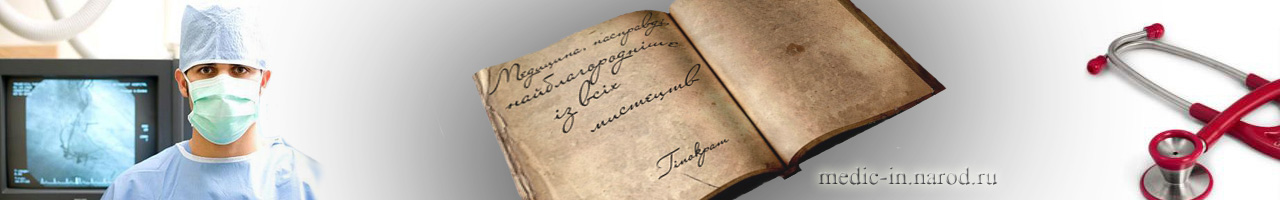 Медицина, насправді
найблагородніше
із всіх
мистецтв
Гіпократ
medic-in.narod.ru